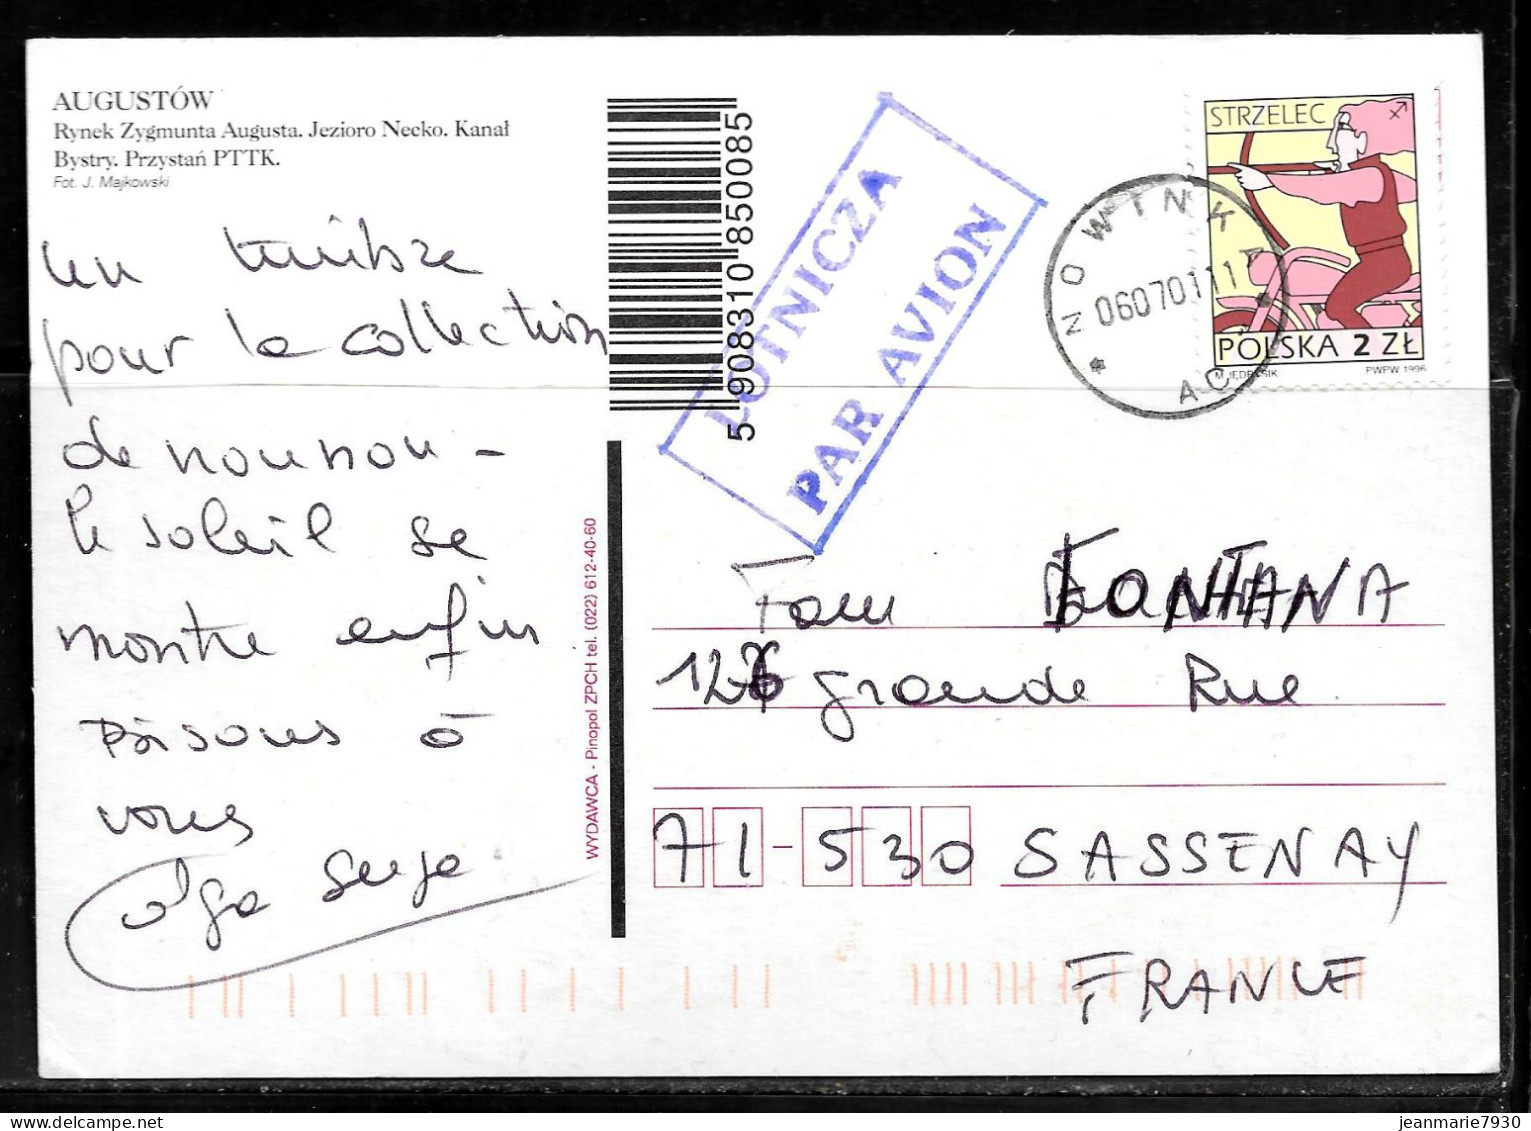 AUGUSTÓW
Rynek Zygmunta Augusta. Jezioro Necko. Kanał
Bystry. Przystań PTTK.
Fot. J. Majkowski
un timbre
pour la collection
de nounou -
le soleil se
montre enfin
Bisous à
vous
Olga Serge
5 908310 850085
LOTNICZA
PAR AVION
STRZELEC
POLSKA 2 ZŁ
M. JĘDRYSIK PWPW 1996
NOWINKA
06070111
WYDAWCA - Pinopol ZPCH tel. (022) 612-40-60
Fam FONTANA
126 grande Rue
71-530 SASSENAY
FRANCE
jeanmarie7930